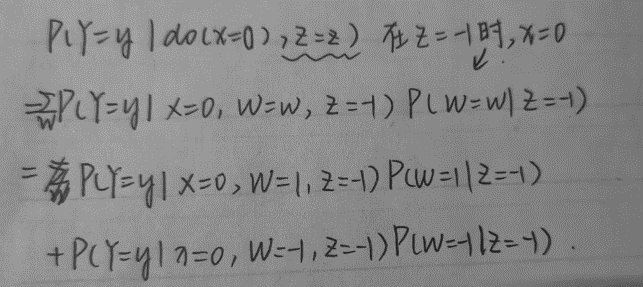 P(Y=y | do(x=0), z=z) 在 z=-1时, x=0
=∑w P(Y=y | x=0, W=w, z=-1) P(W=w | z=-1)
= P(Y=y | x=0, W=1, z=-1) P(W=1 | z=-1)
+ P(Y=y | x=0, W=-1, z=-1) P(W=-1 | z=-1).